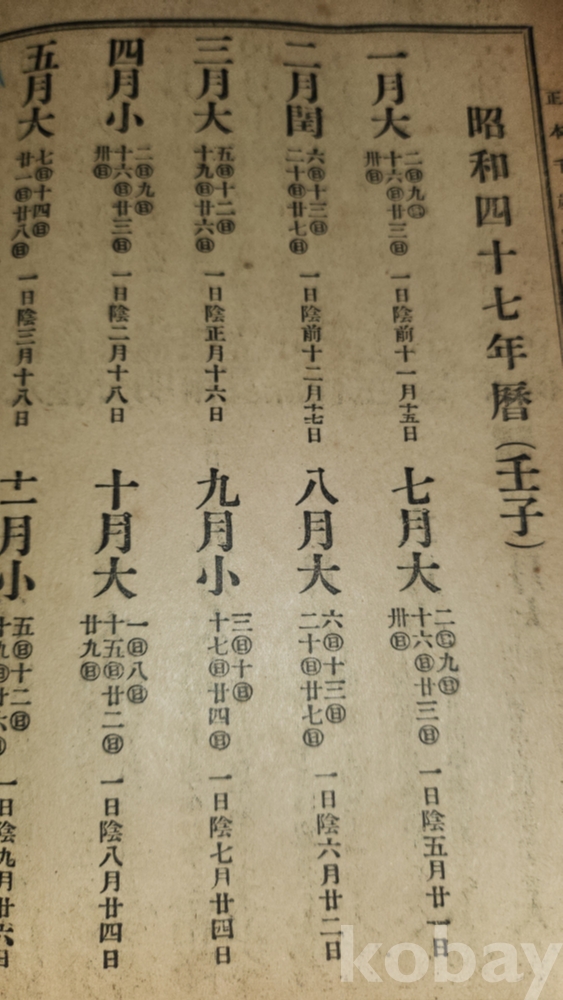 正
昭和四十七年暦（壬子）
一月大
二㊐九㊐
十六㊐廿三㊐
卅㊐
一日陰前十一月十五日
二月閏
六㊐十三㊐
二十㊐廿七㊐
一日陰前十二月十七日
三月大
五㊐十二㊐
十九㊐廿六㊐
一日陰正月十六日
四月小
二㊐九㊐
十六㊐廿三㊐
卅㊐
一日陰二月十八日
五月大
七㊐十四㊐
廿一㊐廿八㊐
一日陰三月十八日
七月大
二㊐九㊐
十六㊐廿三㊐
卅㊐
一日陰五月廿一日
八月大
六㊐十三㊐
二十㊐廿七㊐
一日陰六月廿二日
九月小
三㊐十㊐
十七㊐廿四㊐
一日陰七月廿四日
十月大
一㊐八㊐
十五㊐廿二㊐
廿九㊐
一日陰八月廿四日
十一月小
五㊐十二㊐
十九㊐廿六㊐
一日陰九月廿六日
kobay